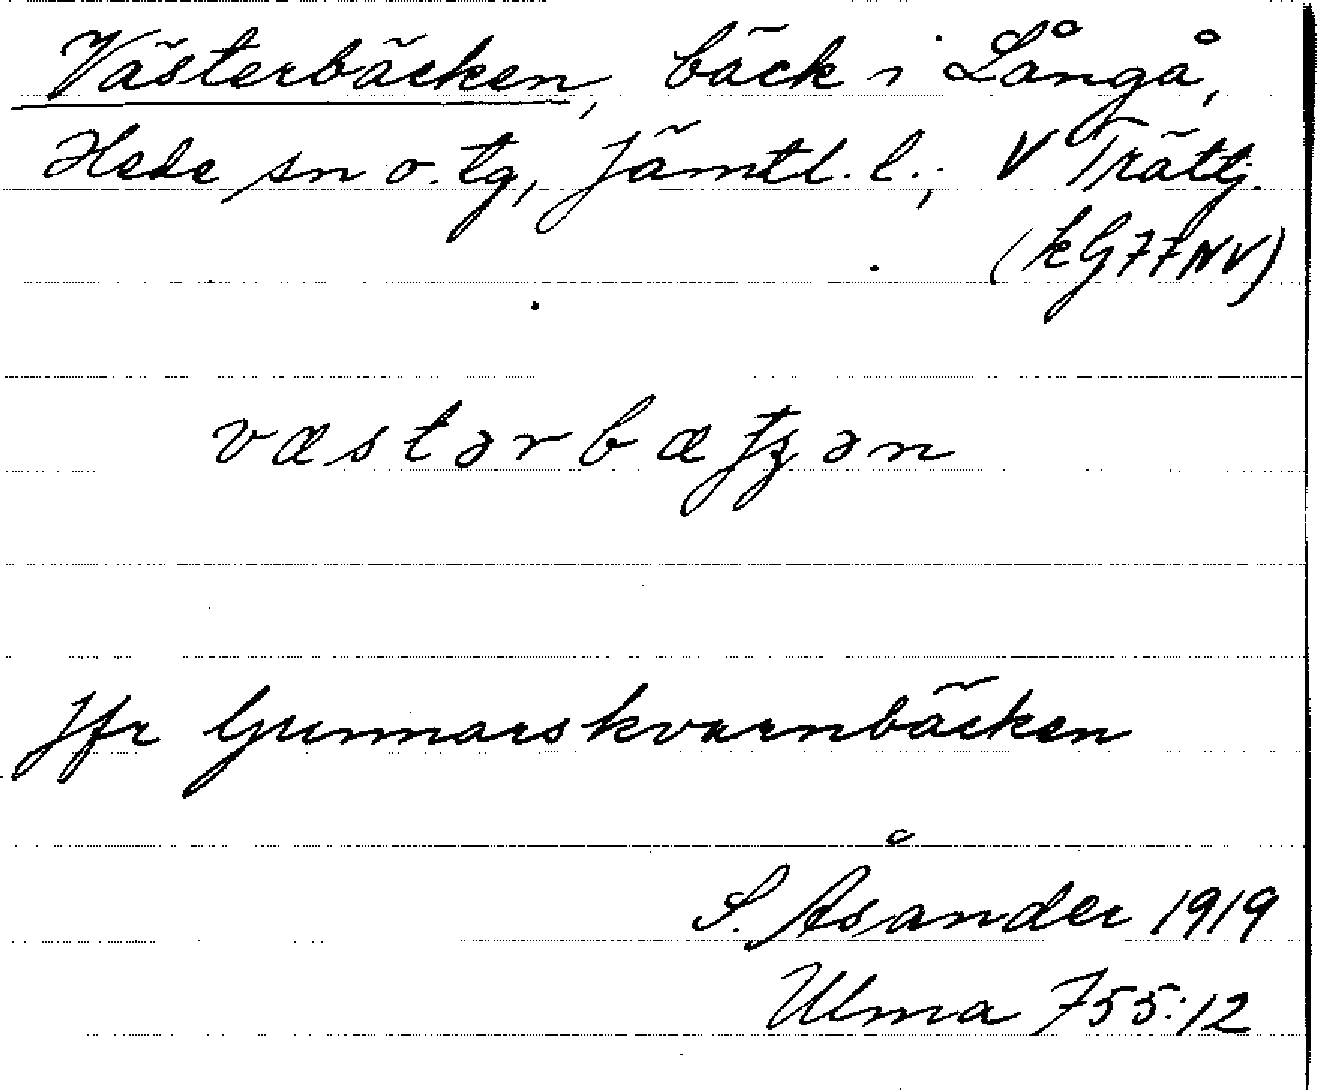 Västerbäcken, bäck i Långå,
Hede sn o. tg, Jämtl. l.; V Trättj.
(kG77NV)
væstərbæƭʒən
Jfr Gunnarskvarnbäcken
S. Åsander 1919
Ulma 755:12